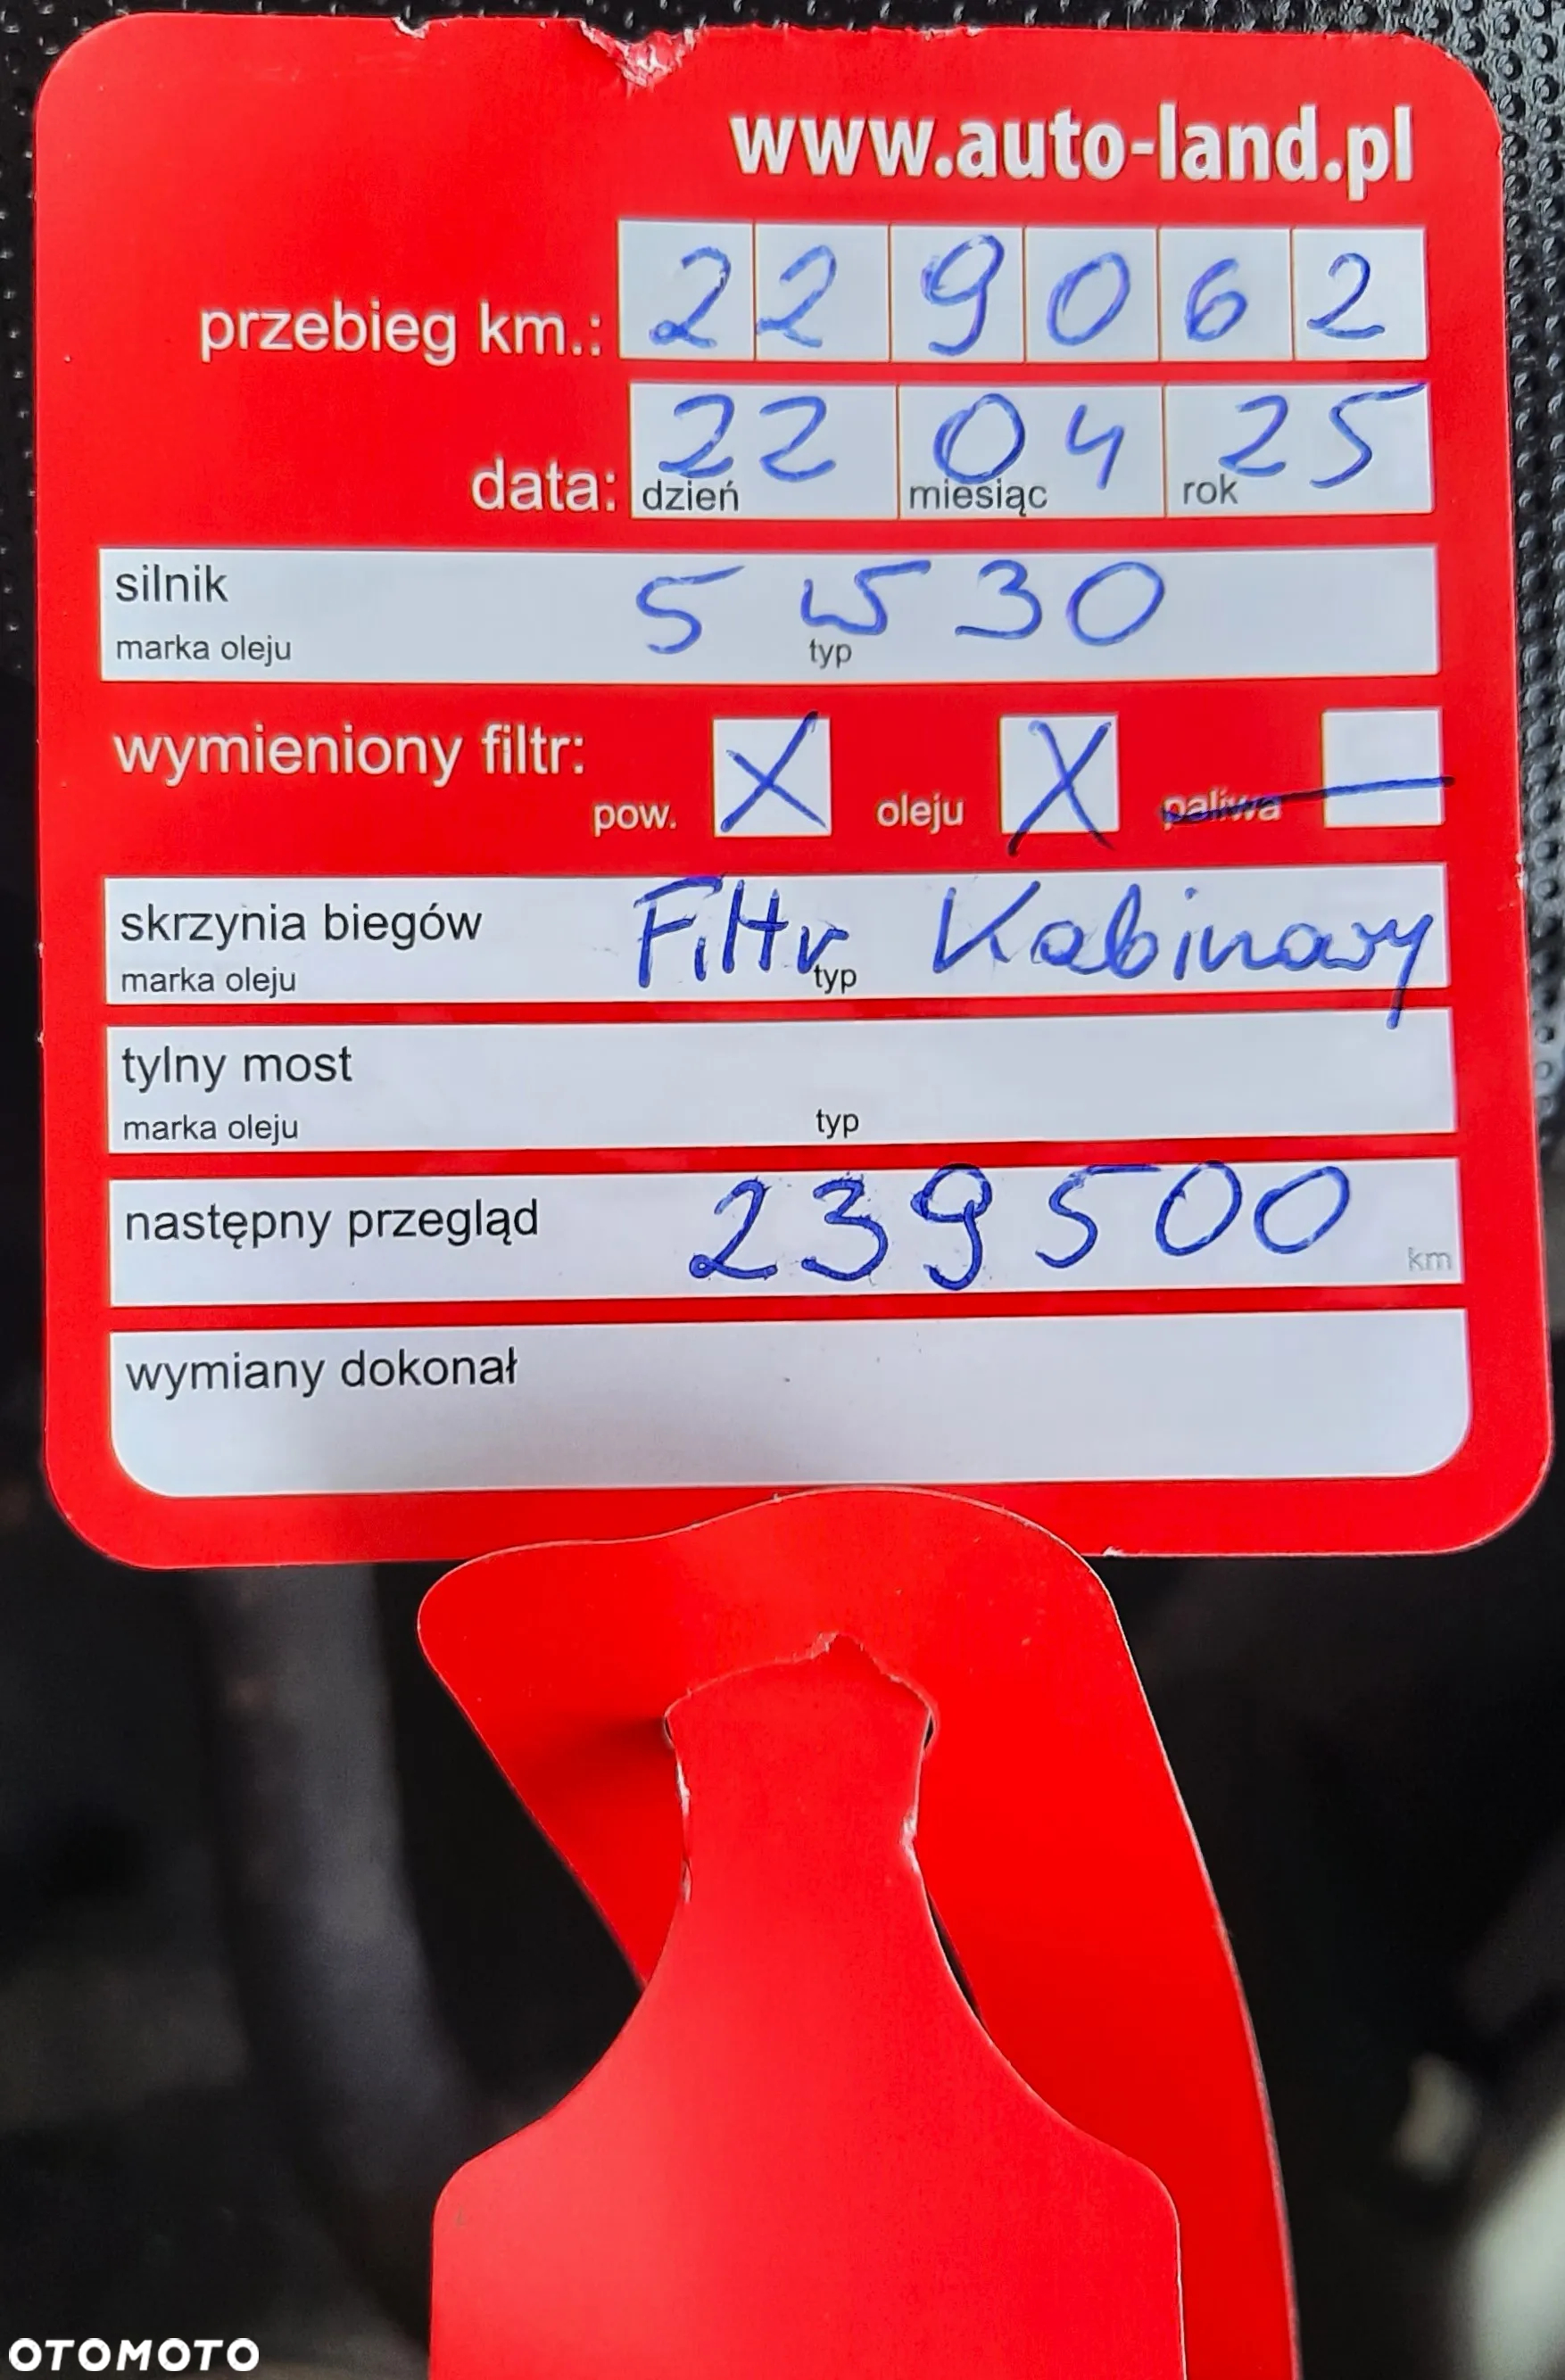 www.auto-land.pl
przebieg km.: 229062
data: 22 04 25
dzień miesiąc rok
silnik 5 W 30
marka oleju typ
wymieniony filtr: pow. X oleju X paliwa
skrzynia biegów Filtr Kabinowy
marka oleju typ
tylny most
marka oleju typ
następny przegląd 239500 km
wymiany dokonał
OTOMOTO